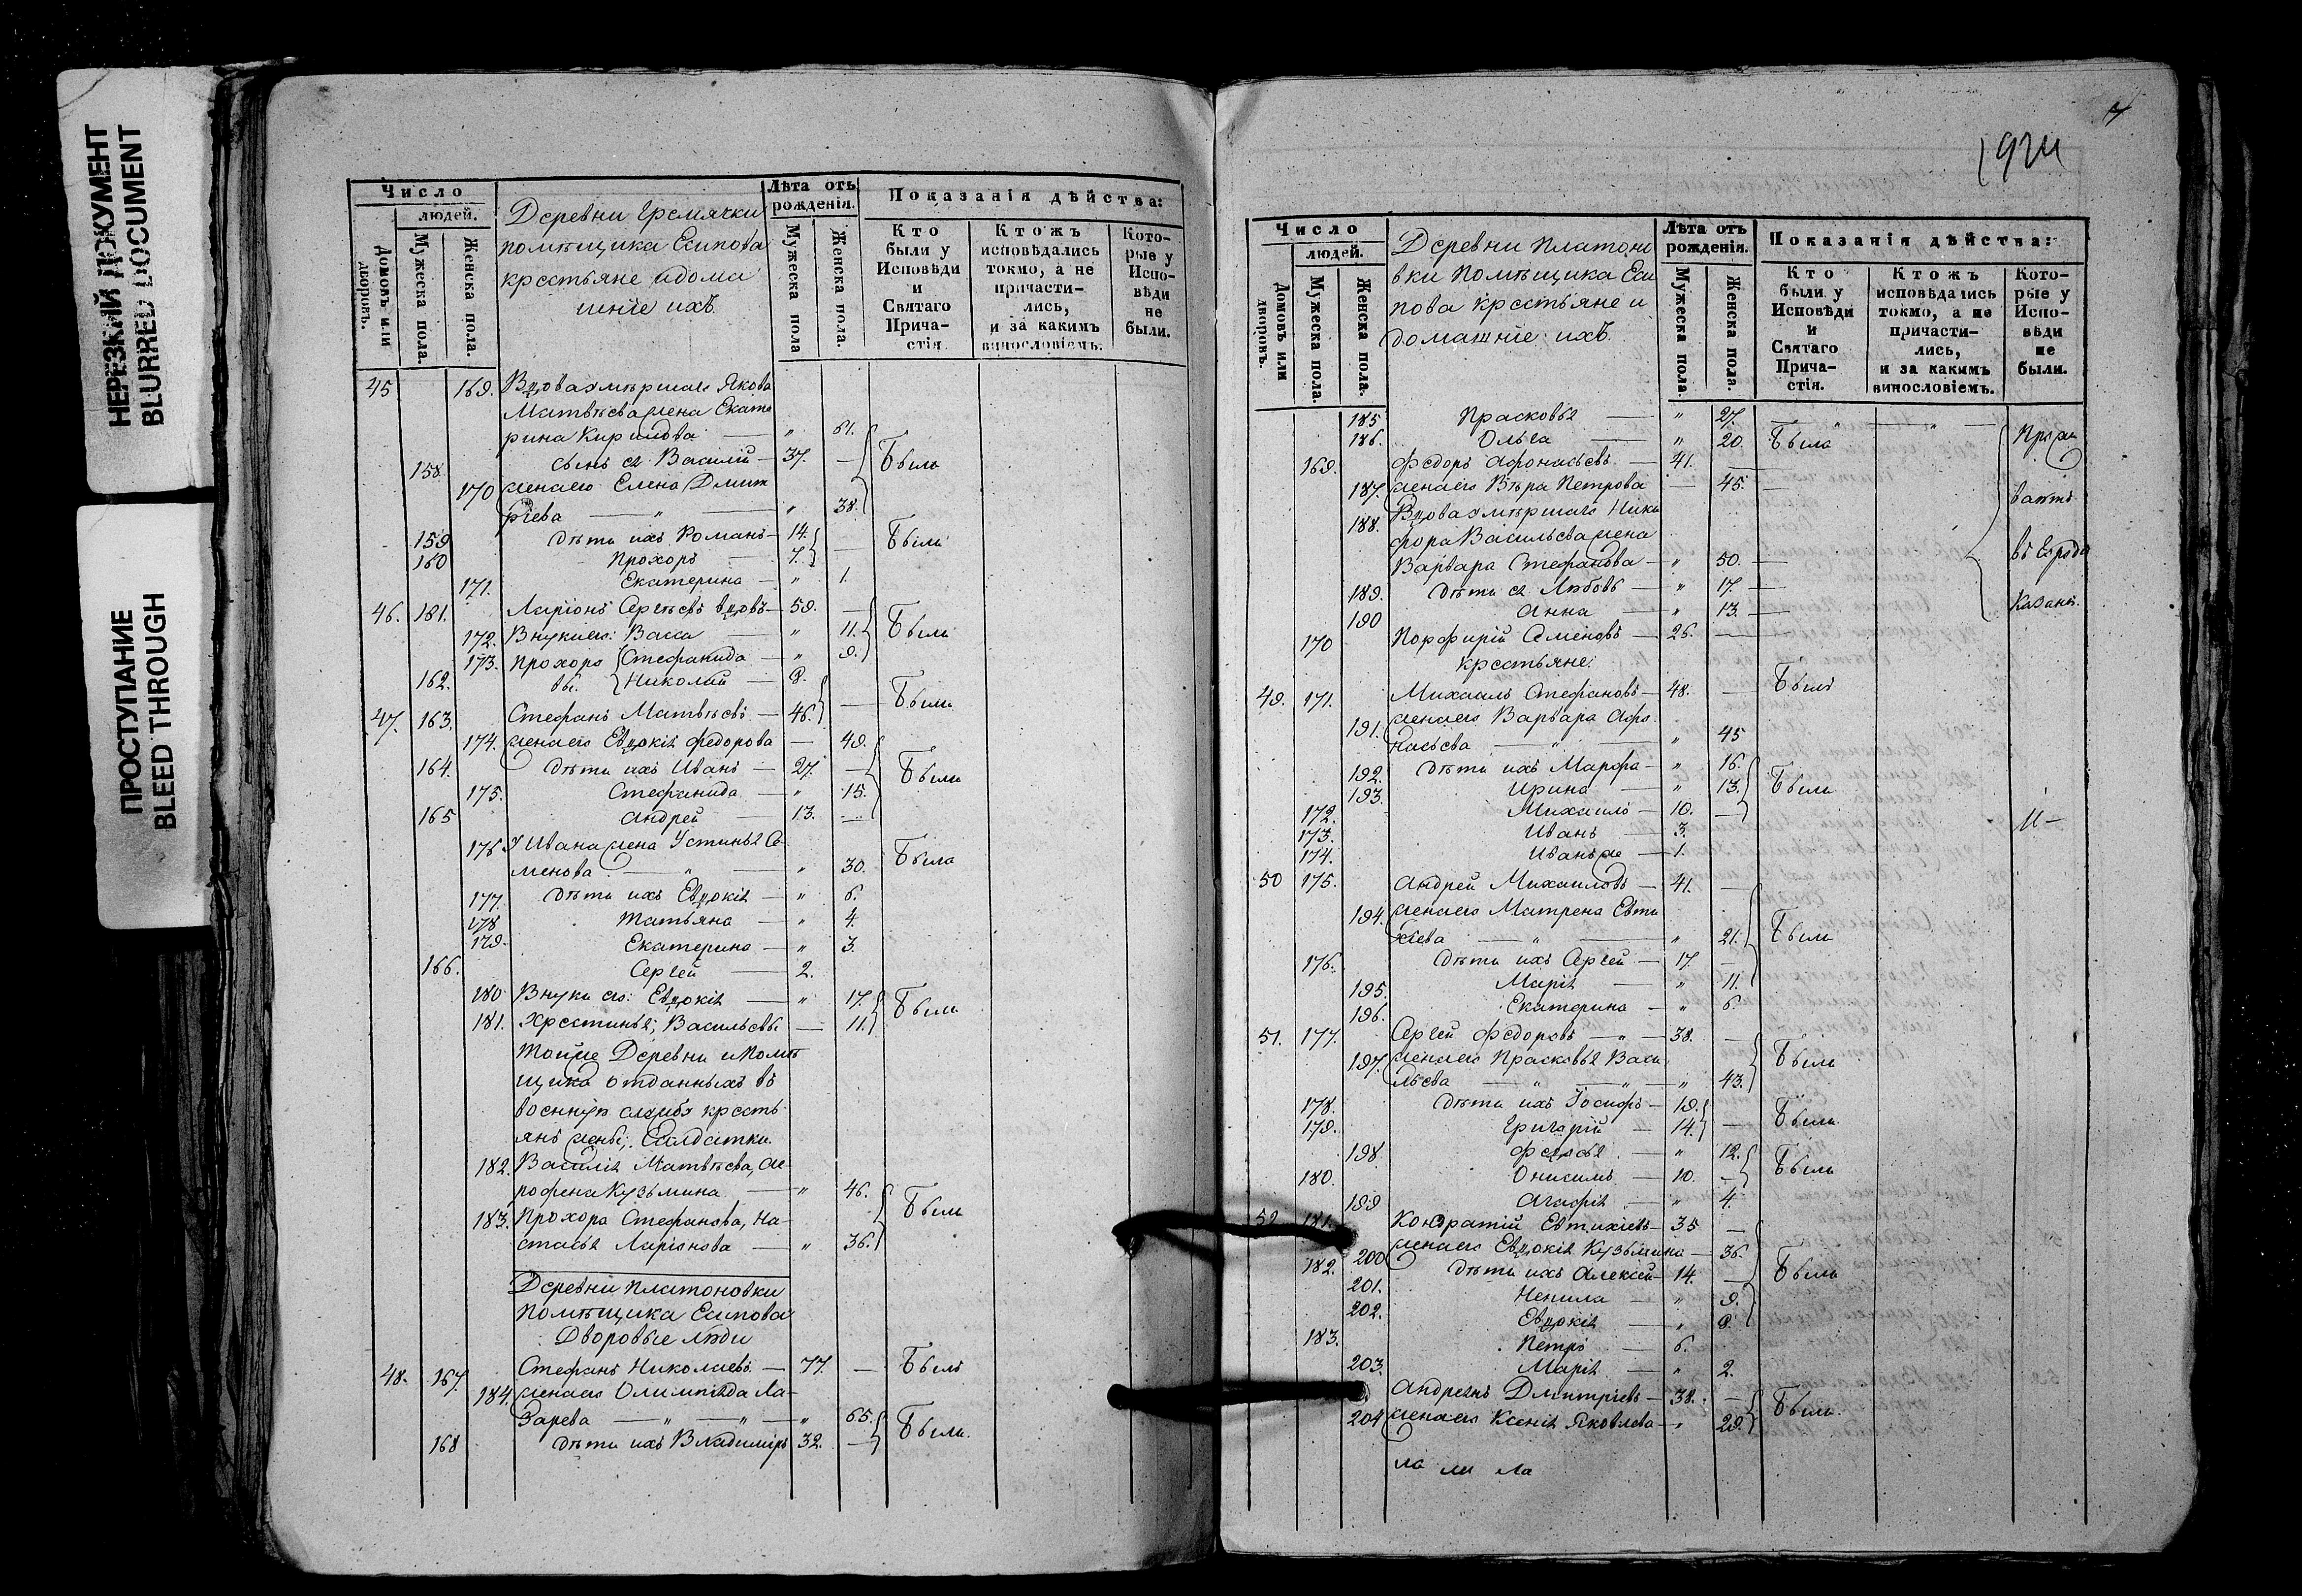 НЕРЕЗКИЙ ДОКУМЕНТ
BLURRED DOCUMENT
ПРОСТУПАНИЕ
BLEED THROUGH
Число
людей.
Домовъ или дворовъ.
Мужеска пола.
Женска пола.
Деревни Гремячки
помѣщика Есипова
крестьяне и дома
шніе ихъ.
Лѣта отъ рожденія.
Мужеска пола
Женска пола.
Показанія дѣйства:
Кто были у Исповѣди и Святаго Прича-стія.
Ктожъ исповѣдались токмо, а не причасти-лись, и за какимъ винословіемъ.
Кото-рые у Испо-вѣди не были.
45 169. Вдова умѣршаго Якова
Матвѣева жена Екате
рина Кирилова — " 61.
158. сынъ ея Василій — 37. — Были
170 жена его Елена Дмит
ріева — " — " 38.
159 Дѣти ихъ Романъ — 14. — Были
160 Прохоръ — 7.
171. Екатерина — " 1.
46. 181. Ларіонъ Сергѣевъ вдовъ — 59. —
172. Внуки его: Васса — " 11. Были
173. Прохоро Стефанида — " 9.
162. вы. Николай — 8.
47. 163. Стефанъ Матвѣевъ — 46. — Были
174. жена его Евдокія Федорова — 49.
164. Дѣти ихъ Иванъ — 27. — Были
175. Стефанида — " 15.
165 Андрей — 13. —
176 У Ивана жена Устинья Се-
менова — " — " 30. Была
177. Дѣти ихъ Евдокія — " 6.
178 Татьяна — " 4.
179. Екатерина — " 3.
166. Сергей — 2.
180 Внуки его: Евдокія — " 17. Были
181. Хрестинья; Васильевы — 11.
Тойже Деревни и помѣ
щика отданныхъ въ
военную службу кресть
янъ жены; Салдатки.
182. Василія Матвѣева, Аг-
рофена Кузьмина — " 46.
183. Прохора Стефанова, На- Были
стасья Ларіонова — " 36.
Деревни Платоновки
помѣщика Есипова
Дворовые люди
48. 167. Стефанъ Николаевъ — 77. — Былъ
184. жена его Олимпіада Ла-
зарева — " — " — " 65. Были.
168 Дѣти ихъ Владиміръ 32. —
7
Число
людей.
Домовъ или дворовъ.
Мужеска пола.
Женска пола.
Деревни Платоно
вки Помѣщика Еси
пова крестьяне и
домашніе ихъ.
Лѣта отъ рожденія.
Мужеска пола.
Женска пола.
Показанія дѣйства:
Кто были у Исповѣди и Святаго Прича-стія.
Ктожъ исповѣдались токмо, а не причасти-лись, и за какимъ винословіемъ.
Кото-рые у Испо-вѣди не были.
185 Прасковья — " 27. — " —
186. Ольга — " 20. Была Прожи
169. Федоръ Афонасьевъ — 41. —
187. жена его Вѣра Петрова — 45. — ваютъ
188. Вдова умѣршаго Ники
фора Васильева жена
Варвара Стефанова — " 50. — въ Городѣ
189. Дѣти ея Любовь — " 17. —
190 Анна — " 13. — Казани.
170 Порфирій Семеновъ — 26. —
крестьяне:
49. 171. Михаилъ Стефановъ — 48. — Былъ
191. жена его Варвара Афо
насьева — " — " 45
192. Дѣти ихъ Марфа — " 16.
193. Ирина — " 13. Были
172. Михаилъ — 10. —
173. Иванъ — 3.
174. Иванъ же — 1.
50 175. Андрей Михаиловъ — 41. —
194. жена его Матрена Евти
хіева — " — " 21. Были
176. Дѣти ихъ Сергей — 17. —
195. Марія — " 11.
196. Екатерина — " 6.
51. 177. Сергей Федоровъ — " — 38. —
197. жена его Прасковья Васи Были
льева — " — " — " 43.
178. Дѣти ихъ Іосифъ — 19. — Были.
179. Григорій — 14.
198. Федосья — " 12. Были
180. Онисимъ — 10. —
199 Агафія — " 4.
52. 181. Кондратій Евтихіевъ — 35 —
200 жена его Евдокія Кузьмина — 36.
182. Дѣти ихъ Алексѣй — 14. — Были
201. Ненила — " 9.
202. Евдокія — " 8.
183. Петръ — 6.
203. Марія — " 2.
Андреянъ Дмитріевъ — 38. — Были.
204 жена его Ксенія Яковлева — " 29.